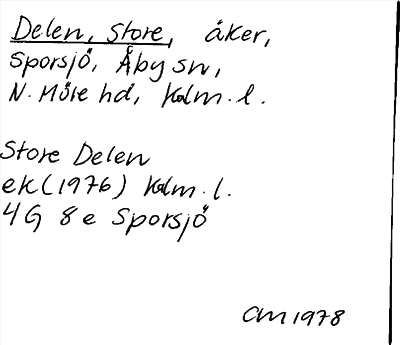 Delen, Store, åker,
Sporsjö, Åby sn,
N. Möre hd, Kalm. l.
Store Delen
ek (1976) Kalm. l.
4G 8e Sporsjö
CM 1978